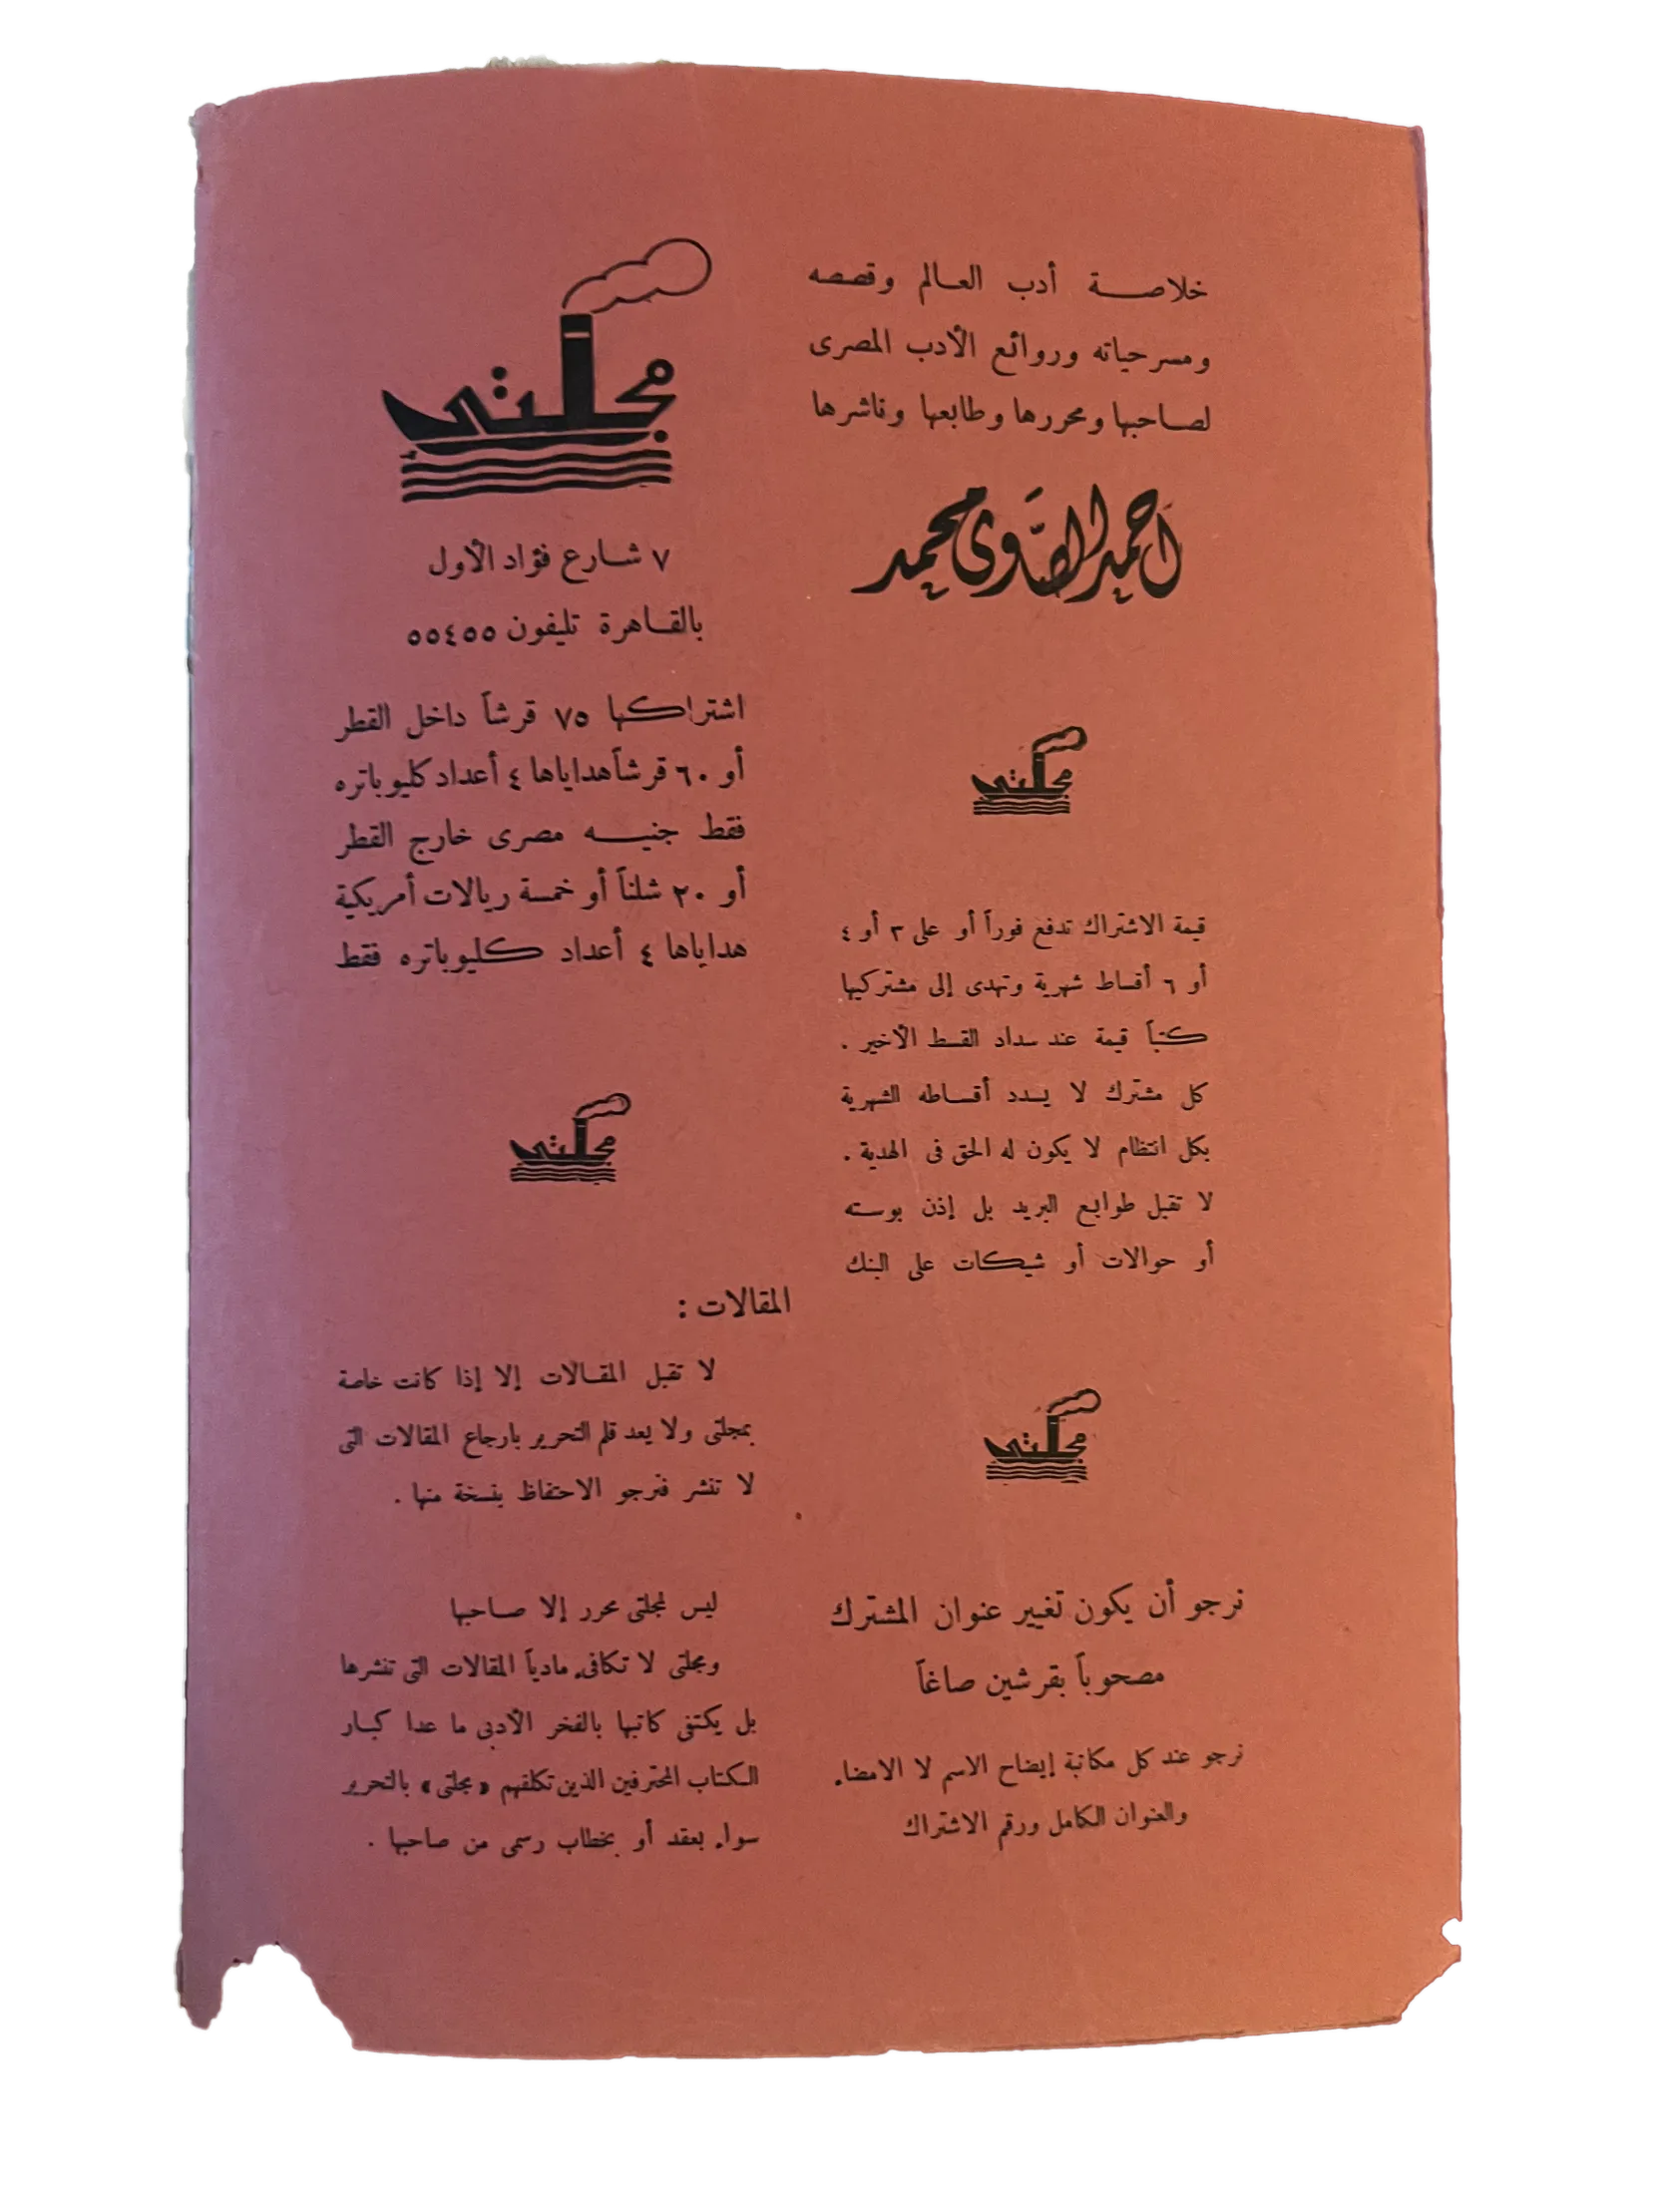 خلاصة أدب العالم وقصصه
ومسرحياته وروائع الأدب المصرى
لصاحبها ومحررها وطابعها وناشرها
أحمد الصاوى محمد
مجلتى
قيمة الاشتراك تدفع فوراً أو على ٣ أو ٤
أو ٦ أقساط شهرية وتهدى إلى مشتركيها
كتباً قيمة عند سداد القسط الأخير .
كل مشترك لا يسدد أقساطه الشهرية
بكل انتظام لا يكون له الحق فى الهدية .
لا تقبل طوابع البريد بل إذن بوسته
أو حوالات أو شيكات على البنك
مجلتى
نرجو أن يكون تغيير عنوان المشترك
مصحوباً بقرشين صاغاً
نرجو عند كل مكاتبة إيضاح الاسم لا الامضاء
والعنوان الكامل ورقم الاشتراك
مجلتى
٧ شارع فؤاد الأول
بالقاهرة تليفون ٥٥٤٥٥
اشتراكها ٧٥ قرشاً داخل القطر
أو ٦٠ قرشاً هداياها ٤ أعداد كليوباتره
فقط جنيه مصرى خارج القطر
أو ٢٠ شلناً أو خمسة ريالات أمريكية
هداياها ٤ أعداد كليوباتره فقط
مجلتى
المقالات :
لا تقبل المقالات إلا إذا كانت خاصة
بمجلتى ولا يعد قلم التحرير بارجاع المقالات التى
لا تنشر فنرجو الاحتفاظ بنسخة منها .
ليس لمجلتى محرر إلا صاحبها
ومجلتى لا تكافىء مادياً المقالات التى تنشرها
بل يكتفى كاتبها بالفخر الأدبى ما عدا كبار
الكتاب المحترفين الذين تكلفهم «مجلتى» بالتحرير
سواء بعقد أو بخطاب رسمى من صاحبها .